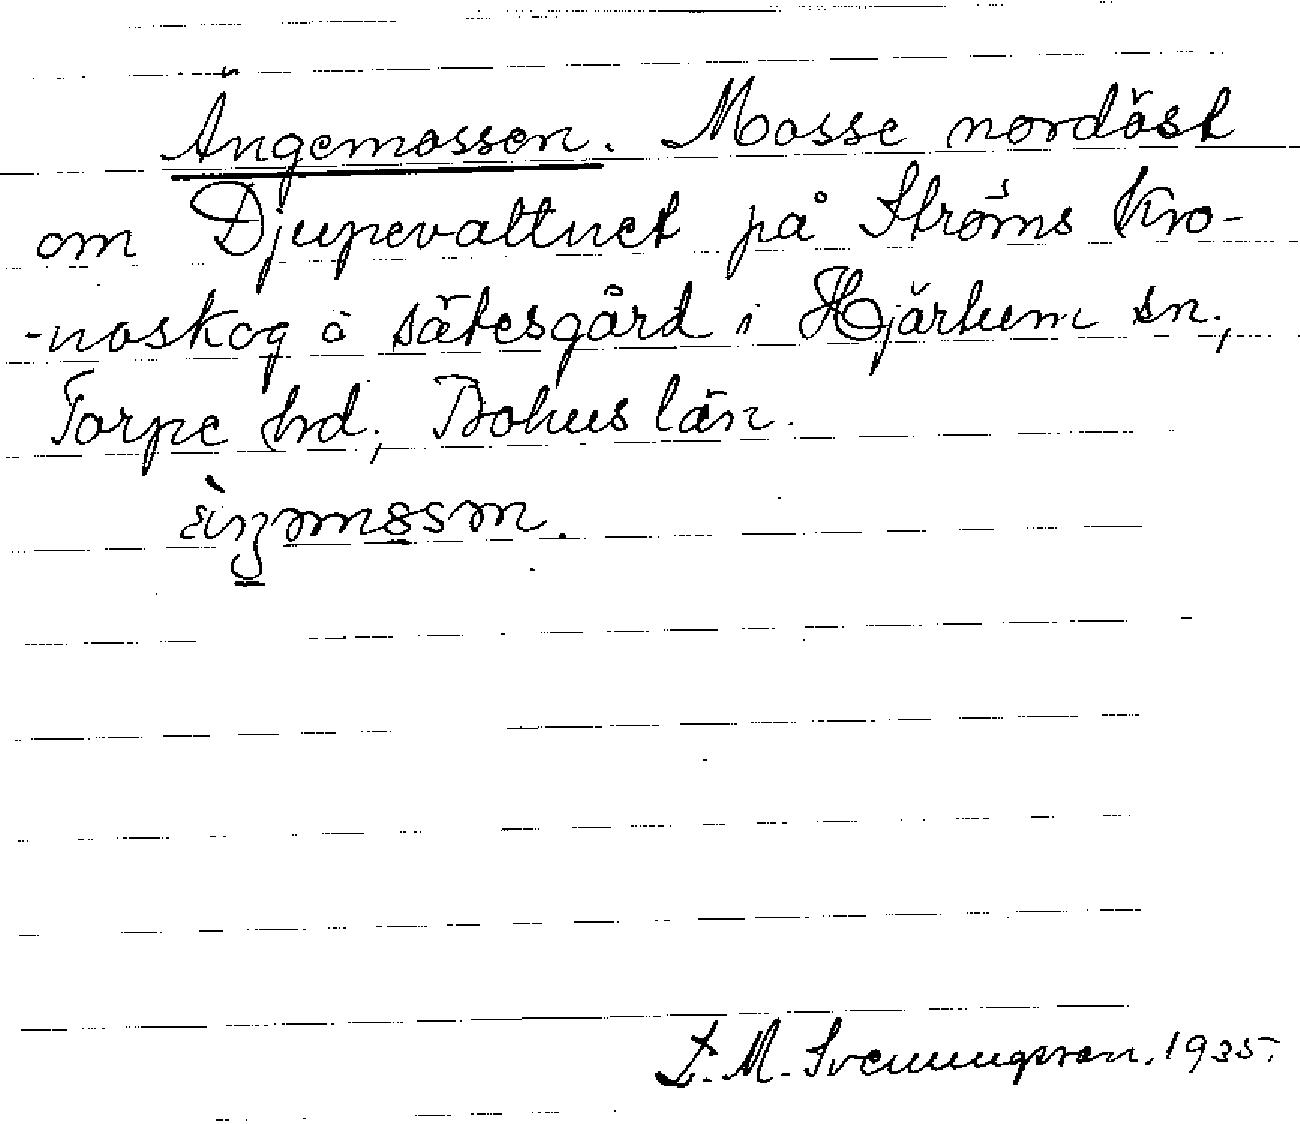 Ängemossen. Mosse nordöst
om Djupevattnet på Ströms kro-
-noskog o sätesgård i Hjärtum sn.,
Torpe hrd., Bohus län.
Z. M. Svenningsson. 1935.